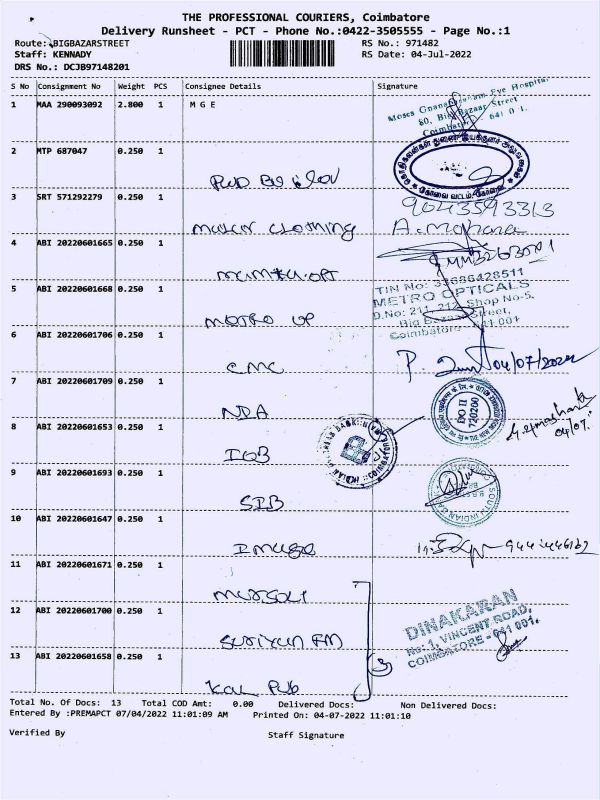 THE PROFESSIONAL COURIERS, Coimbatore
Delivery Runsheet - PCT - Phone No.:0422-3505555 - Page No.:1
Route: BIGBAZARSTREET RS No.: 971482
Staff: KENNADY RS Date: 04-Jul-2022
DRS No.: DCJB97148201
S No Consignment No Weight PCS Consignee Details Signature
1 MAA 290093092 2.800 1 M G E
Eye Hospital
60, Big Bazaar Street
Coimbatore 641 0 1.
2 MTP 687047 0.250 1
3 SRT 571292279 0.250 1
9043593313
clothing
4 ABI 20220601665 0.250 1
TIN No: 33686428511
5 ABI 20220601668 0.250 1
METRO OPTICALS
D.No: 211, 212, Shop No-5,
metro op
Big Bazaar Street,
Coimbatore - 641 001
6 ABI 20220601706 0.250 1
P. 04/07/2022
CMC
7 ABI 20220601709 0.250 1
NDA
DO II
720200
04/07.
8 ABI 20220601653 0.250 1
IOB
9 ABI 20220601693 0.250 1
SOUTH INDIAN
SIB
10 ABI 20220601647 0.250 1
Image
11 ABI 20220601671 0.250 1
murasoli
12 ABI 20220601700 0.250 1
DINAKARAN
No: 1, VINCENT ROAD,
COIMBATORE - 641 001.
suriyan FM
13 ABI 20220601658 0.250 1
3
Kal Pub
Total No. Of Docs: 13 Total COD Amt: 0.00 Delivered Docs: Non Delivered Docs:
Entered By :PREMAPCT 07/04/2022 11:01:09 AM Printed On: 04-07-2022 11:01:10
Verified By Staff Signature